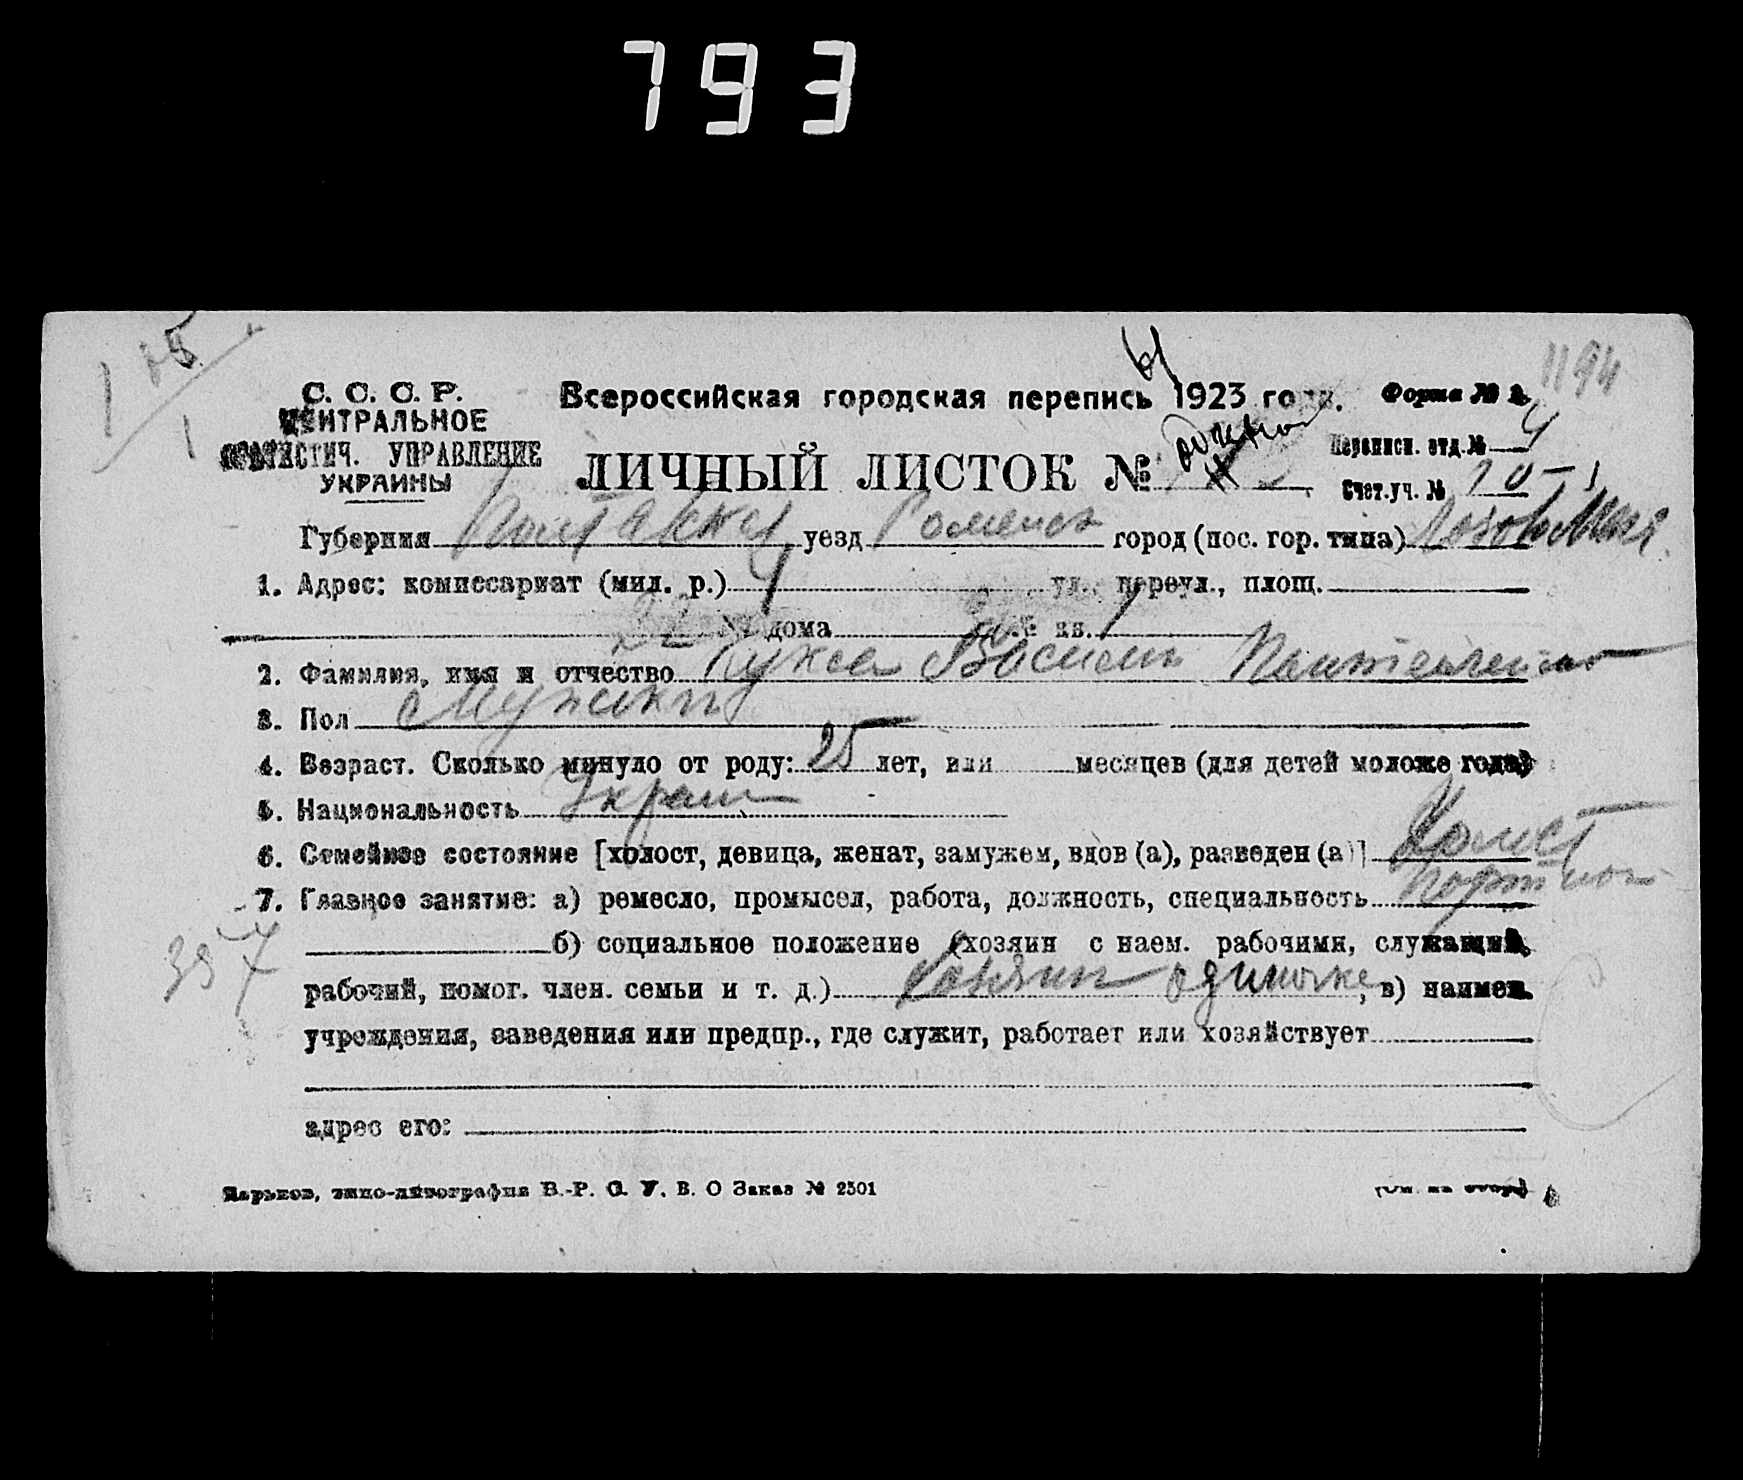 793
1194
С. С. С. Р.
ЦЕНТРАЛЬНОЕ
СТАТИСТИЧ. УПРАВЛЕНИЕ
УКРАИНЫ
Всероссийская городская перепись 1923 года.
Форма № 2
ЛИЧНЫЙ ЛИСТОК №
Переписн. отд. № 4
Счет. уч. № 10-1
Губерния Полтавск уезд Роменск город (пос. гор. типа)
1. Адрес: комиссариат (мил. р.) 4 ул., переул., площ.
№ дома № кв. 1
2. Фамилия, имя и отчество Кукса Василь Пантелеймо
3. Пол Мужский
4. Возраст. Сколько минуло от роду: 25 лет, или месяцев (для детей моложе года)
5. Национальность Украин
6. Семейное состояние [холост, девица, женат, замужем, вдов (а), разведен (а)] Холост
7. Главное занятие: а) ремесло, промысел, работа, должность, специальность Портной
357
б) социальное положение (хозяин с наем. рабочими, служащий,
рабочий, помог. член. семьи и т. д.) Хозяин одиночка, в) наимен.
учреждения, заведения или предпр., где служит, работает или хозяйствует
адрес его:
Харьков, типо-литография В.-Р. С. У. В. О Заказ № 2501